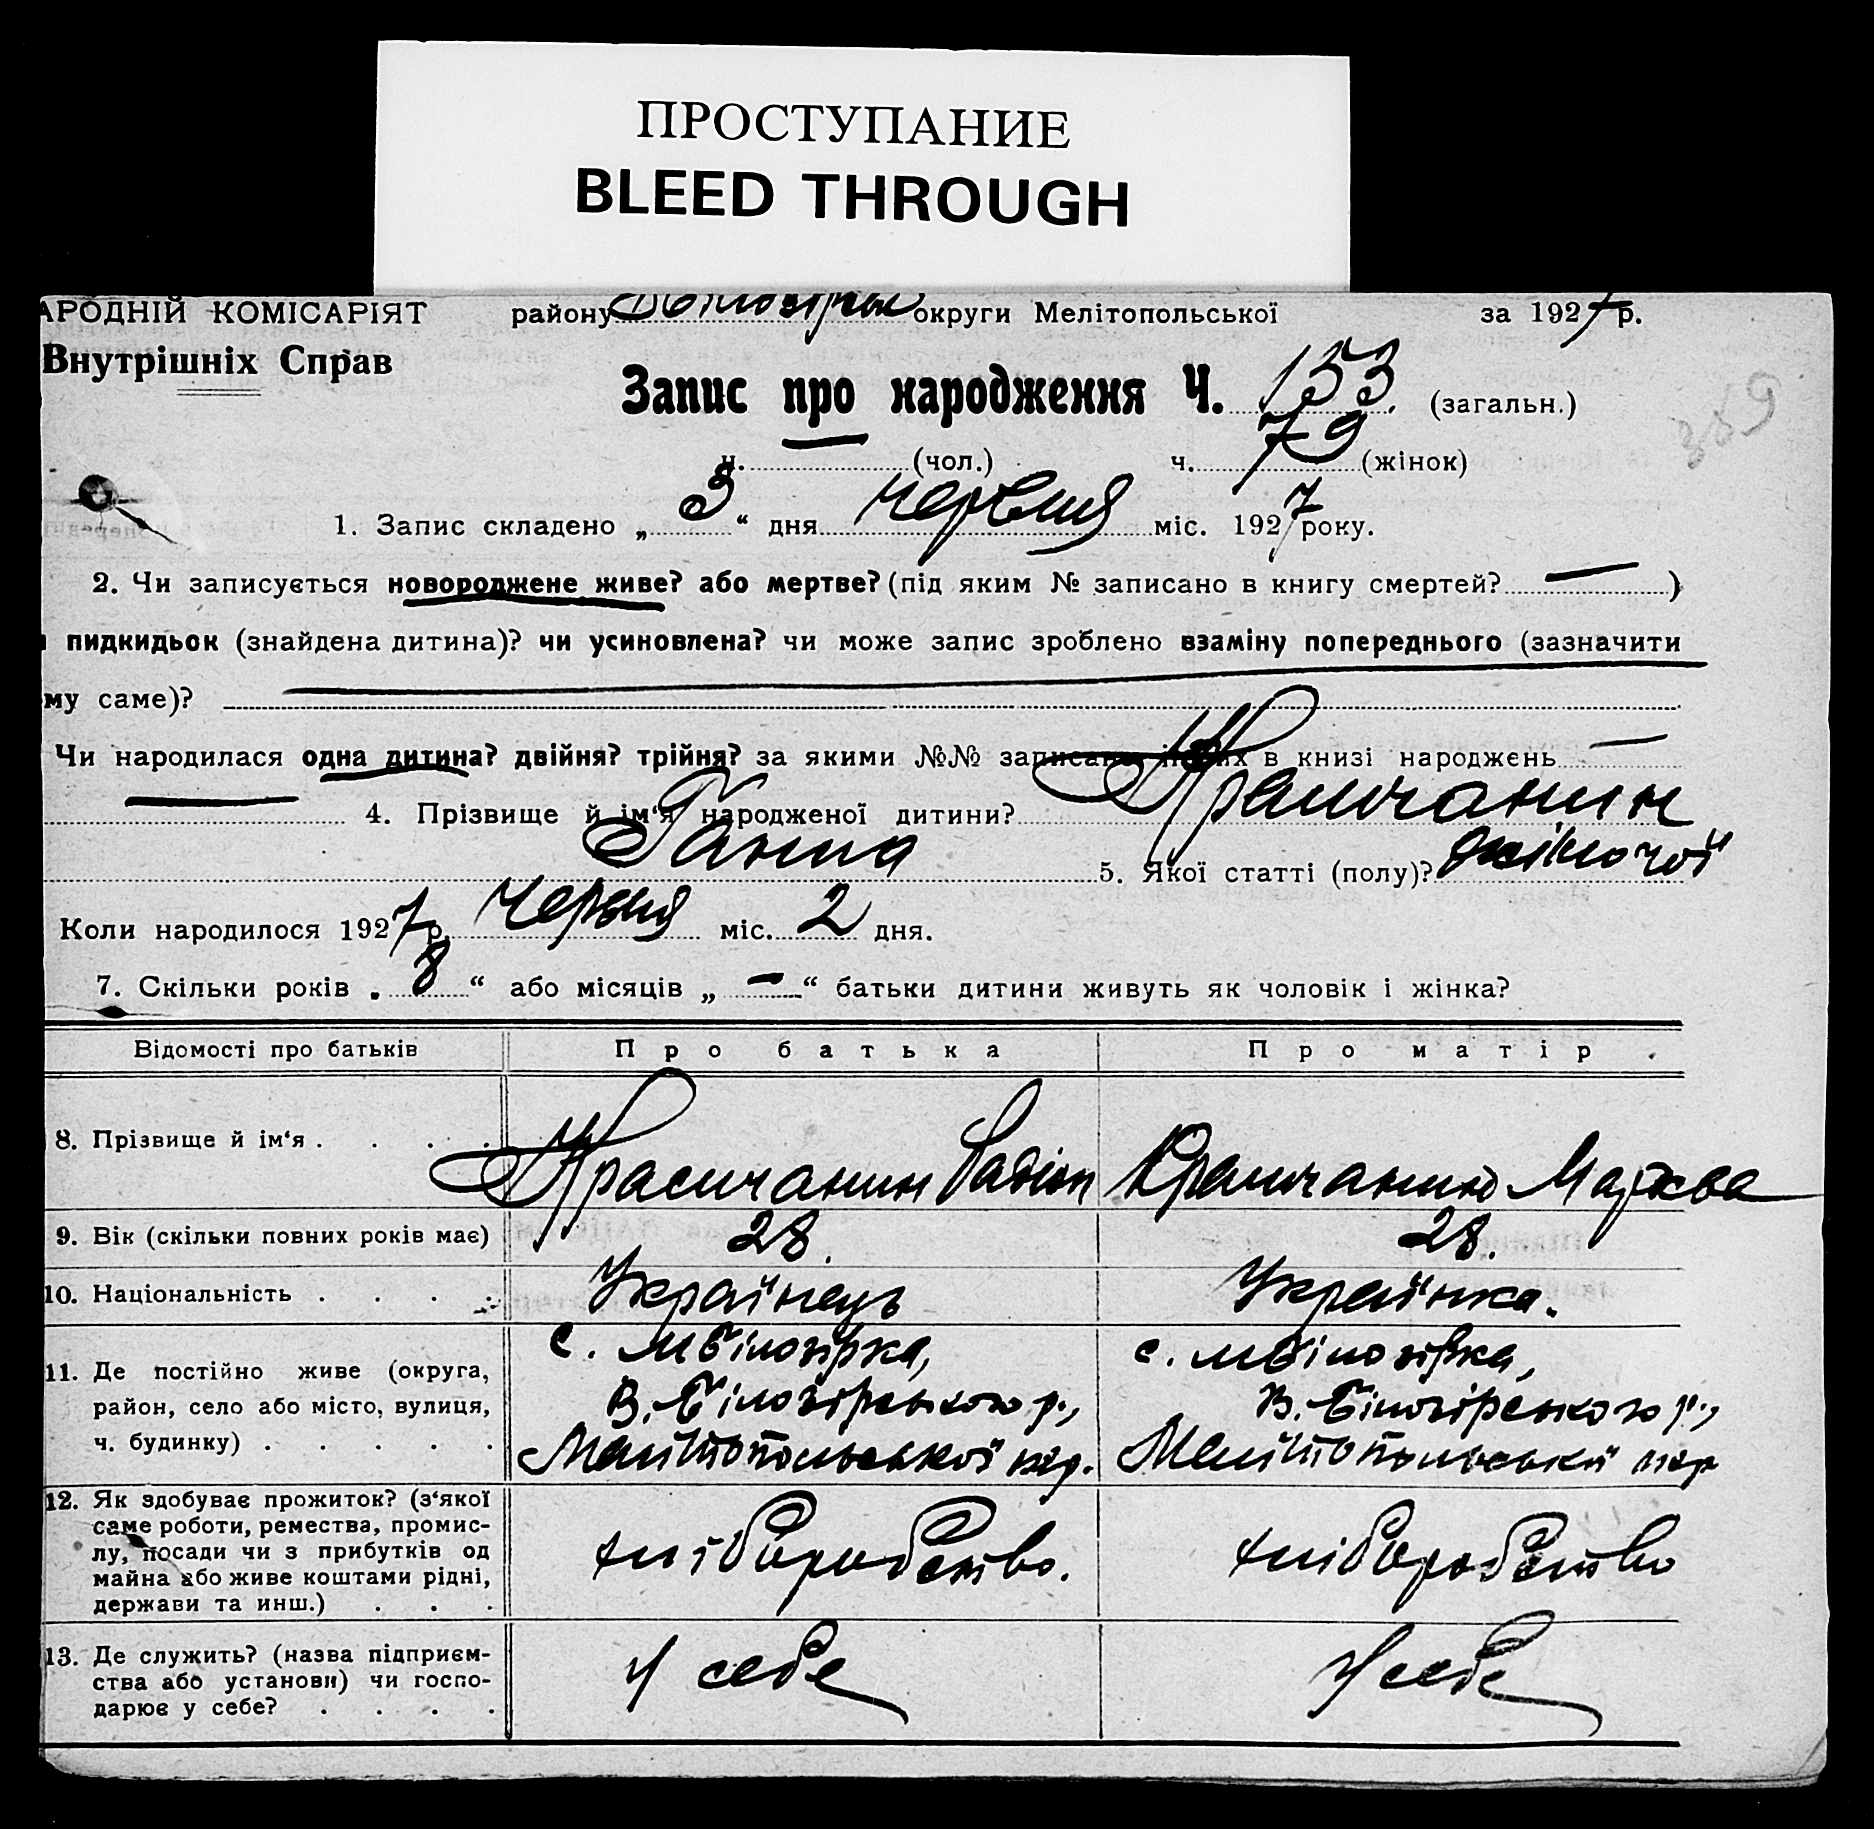 ПРОСТУПАНИЕ
BLEED THROUGH
АРОДНІЙ КОМІСАРІЯТ району округи Мелітопольської за 1927 р.
Внутрішніх Справ
Запис про народження Ч. 153 (загальн.)
359
ч. (чол.) ч. 79 (жінок)
1. Запис складено „ 3 “ дня червня міс. 1927 року.
2. Чи записується новороджене живе? або мертве? (під яким № записано в книгу смертей? — )
пидкидьок (знайдена дитина)? чи усиновлена? чи може запис зроблено взаміну попереднього (зазначити
му саме)?
Чи народилася одна дитина? двійня? трійня? за якими №№ записано інших в книзі народжень —
4. Прізвище й ім‘я народженої дитини? Красичанин
Ганна 5. Якої статті (полу)? жіночої
Коли народилося 1927 р. червня міс. 2 дня.
7. Скільки років „ 8 “ або місяців „ — “ батьки дитини живуть як чоловік і жінка?
Відомості про батьків Про батька Про матір
8. Прізвище й ім‘я . . . . Красичанин Радіон Марква
9. Вік (скільки повних років має) 28. 28.
10. Національність . . . . Українець Українка.
11. Де постійно живе (округа, с. мБілозірка, с. мБілозірка,
район, село або місто, вулиця, В.-Білозірського р., В.-Білозірського р.,
ч. будинку) . . . . . Меліттопольської окр. Меліттопольської окр
12. Як здобуває прожиток? (з‘якої
саме роботи, ремества, промис-
лу, посади чи з прибутків од хліборобство. хліборобство
майна або живе коштами рідні,
держави та инш.) . . .
13. Де служить? (назва підприєм-
ства або установи) чи госпо- У себе У себе
дарює у себе? . . . .